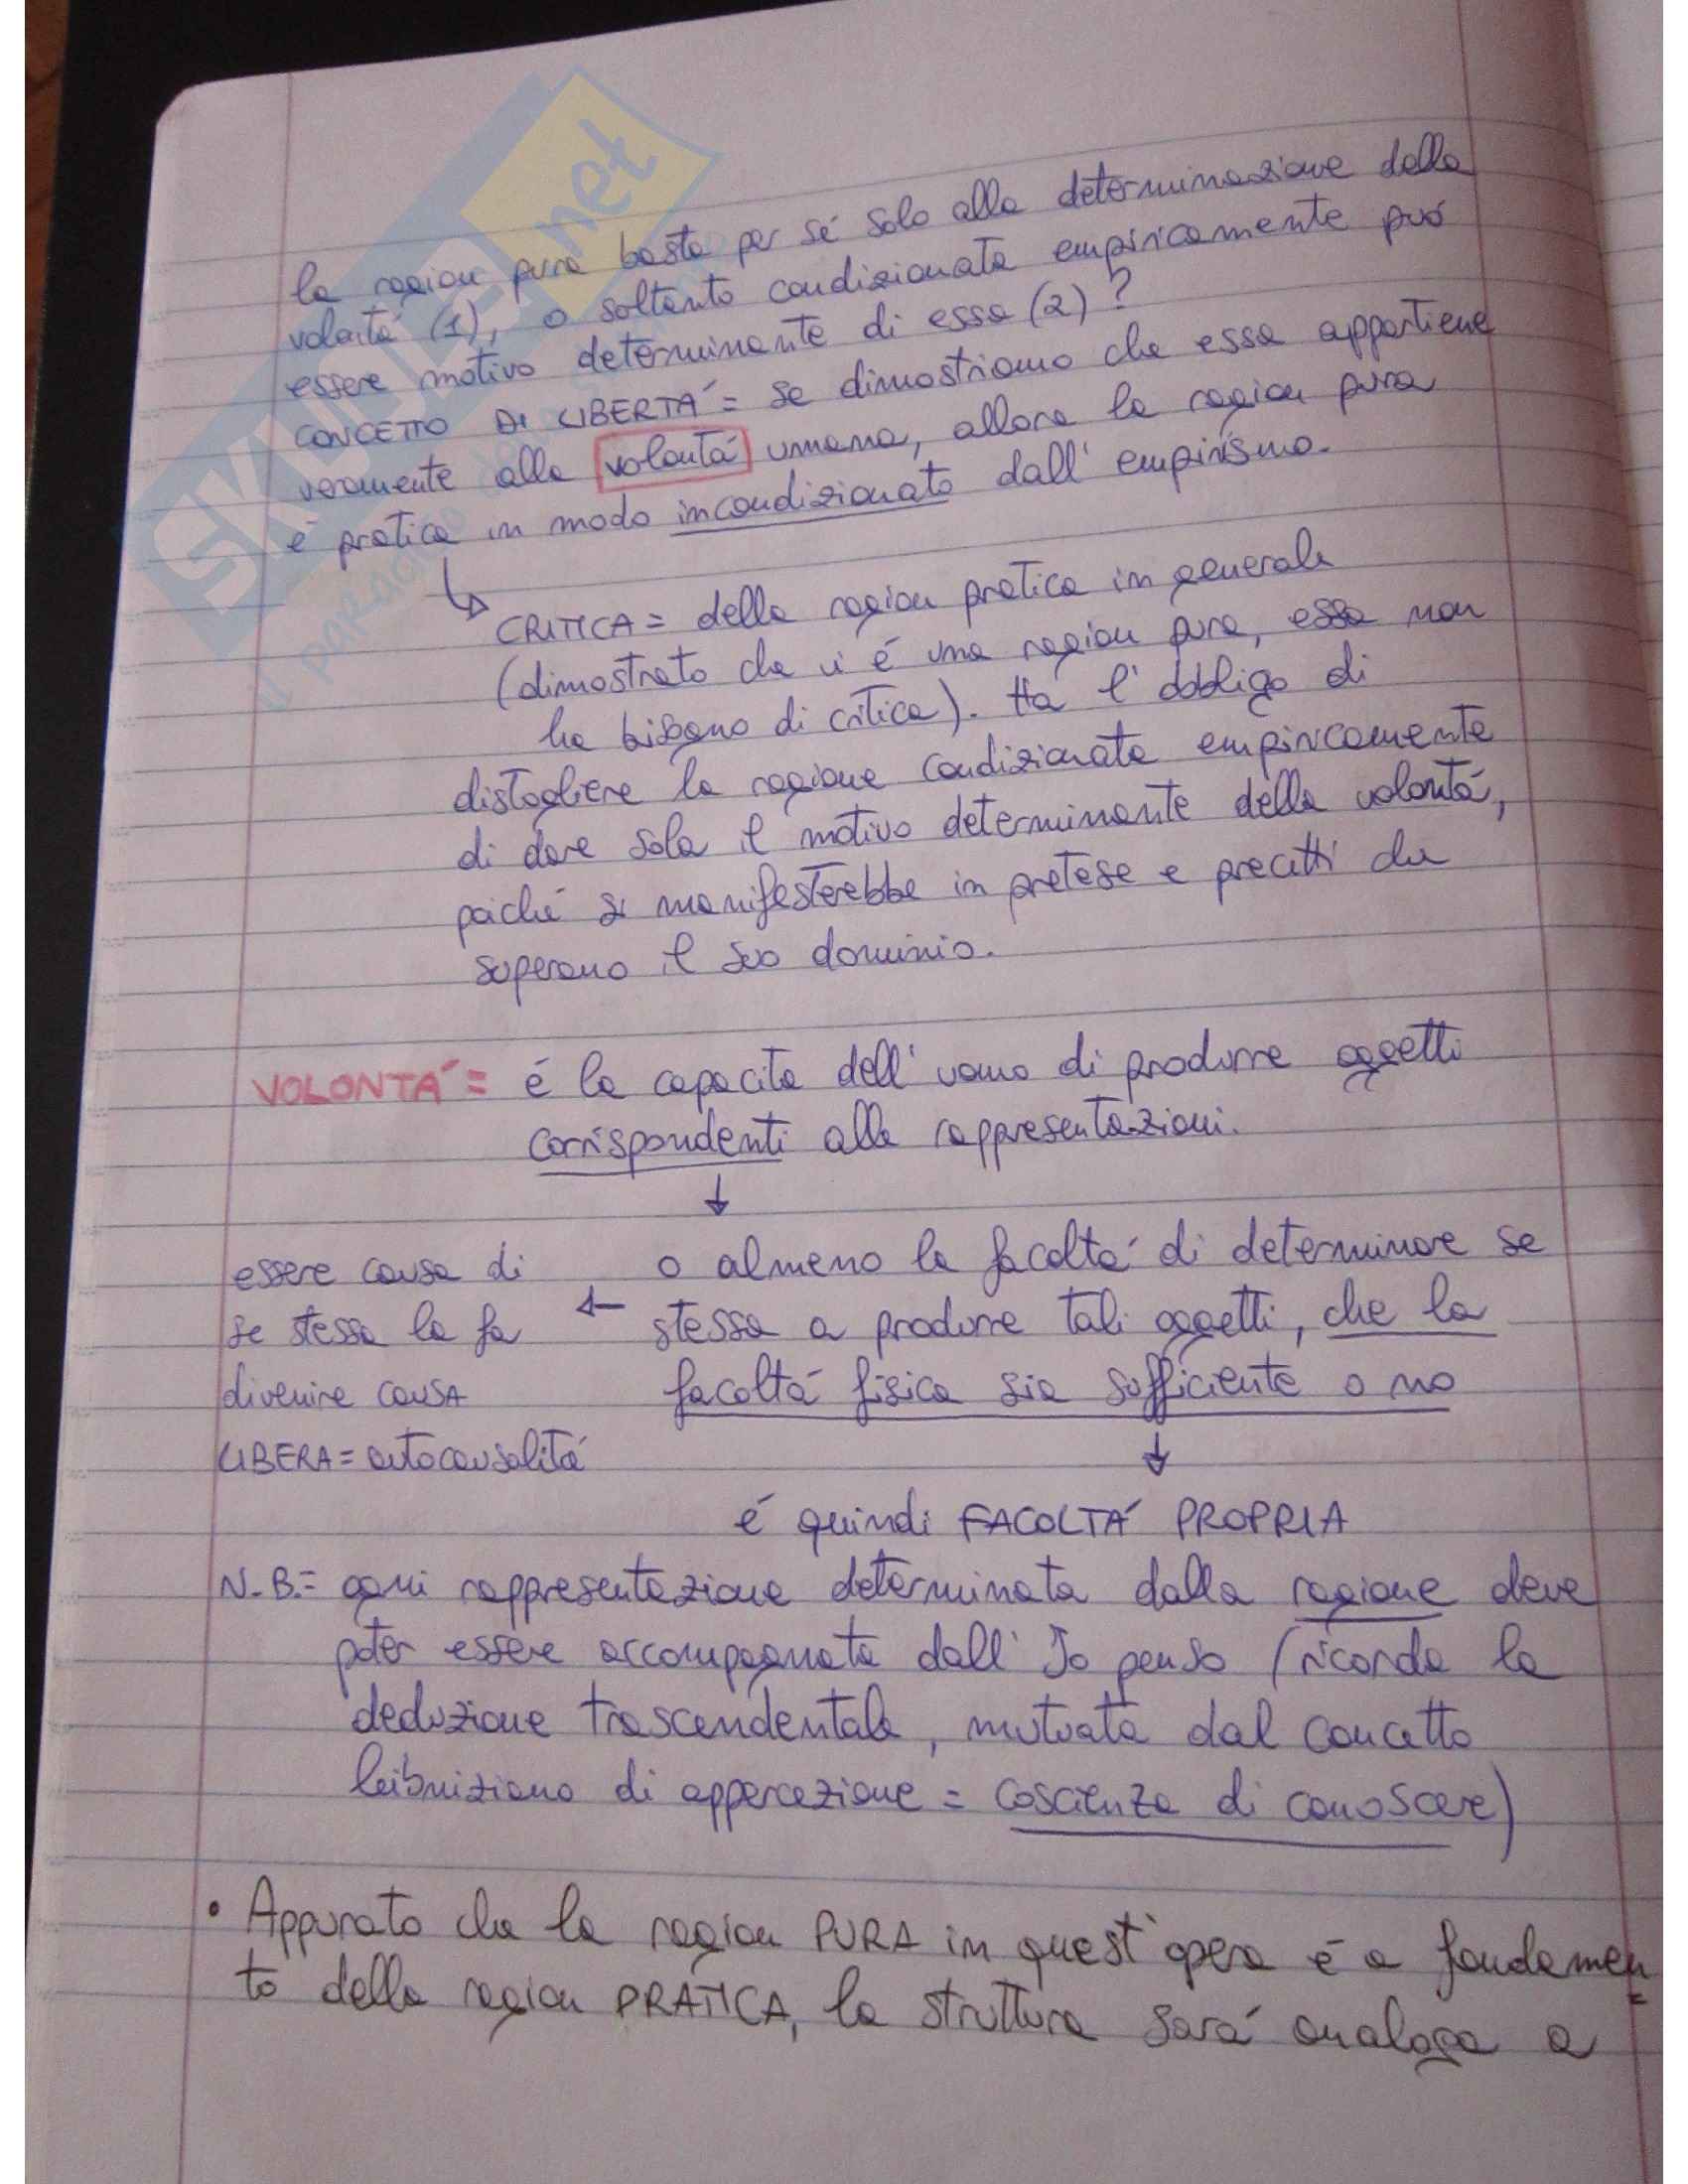 la ragion pura basta per sé sola alla determinazione della
volontá (1), o soltanto condizionata empiricamente può
essere motivo determinante di essa (2)?
CONCETTO DI LIBERTÁ = se dimostriamo che essa appartiene
veramente alla volontá umana, allora la ragion pura
é pratica in modo incondizionato dall'empirismo.
↳ CRITICA = della ragion pratica in generale
(dimostrato che vi é una ragion pura, essa non
ha bisogno di critica). Ha l'obbligo di
distogliere la ragione condizionata empiricamente
di dare sola il motivo determinante della volontá,
poiché si manifesterebbe in pretese e precetti che
superano il suo dominio.
VOLONTÁ = é la capacità dell'uomo di produrre oggetti
corrispondenti alle rappresentazioni.
↓
o almeno la facoltá di determinare se
stessa a produrre tali oggetti, che la
facoltá fisica sia sufficiente o no
←
essere causa di
se stessa la fa
divenire causa
LIBERA = autocausalitá
↓
é quindi FACOLTÁ PROPRIA
N.B. = ogni rappresentazione determinata dalla ragione deve
poter essere accompagnata dall'Io penso (ricorda la
deduzione trascendentale, mutuata dal concetto
leibniziano di appercezione = coscienza di conoscere)
• Appurato che la ragion PURA in quest'opera é a fondamen
to della ragion PRATICA, la struttura sará analoga a
SKUOLA.net
il paradiso